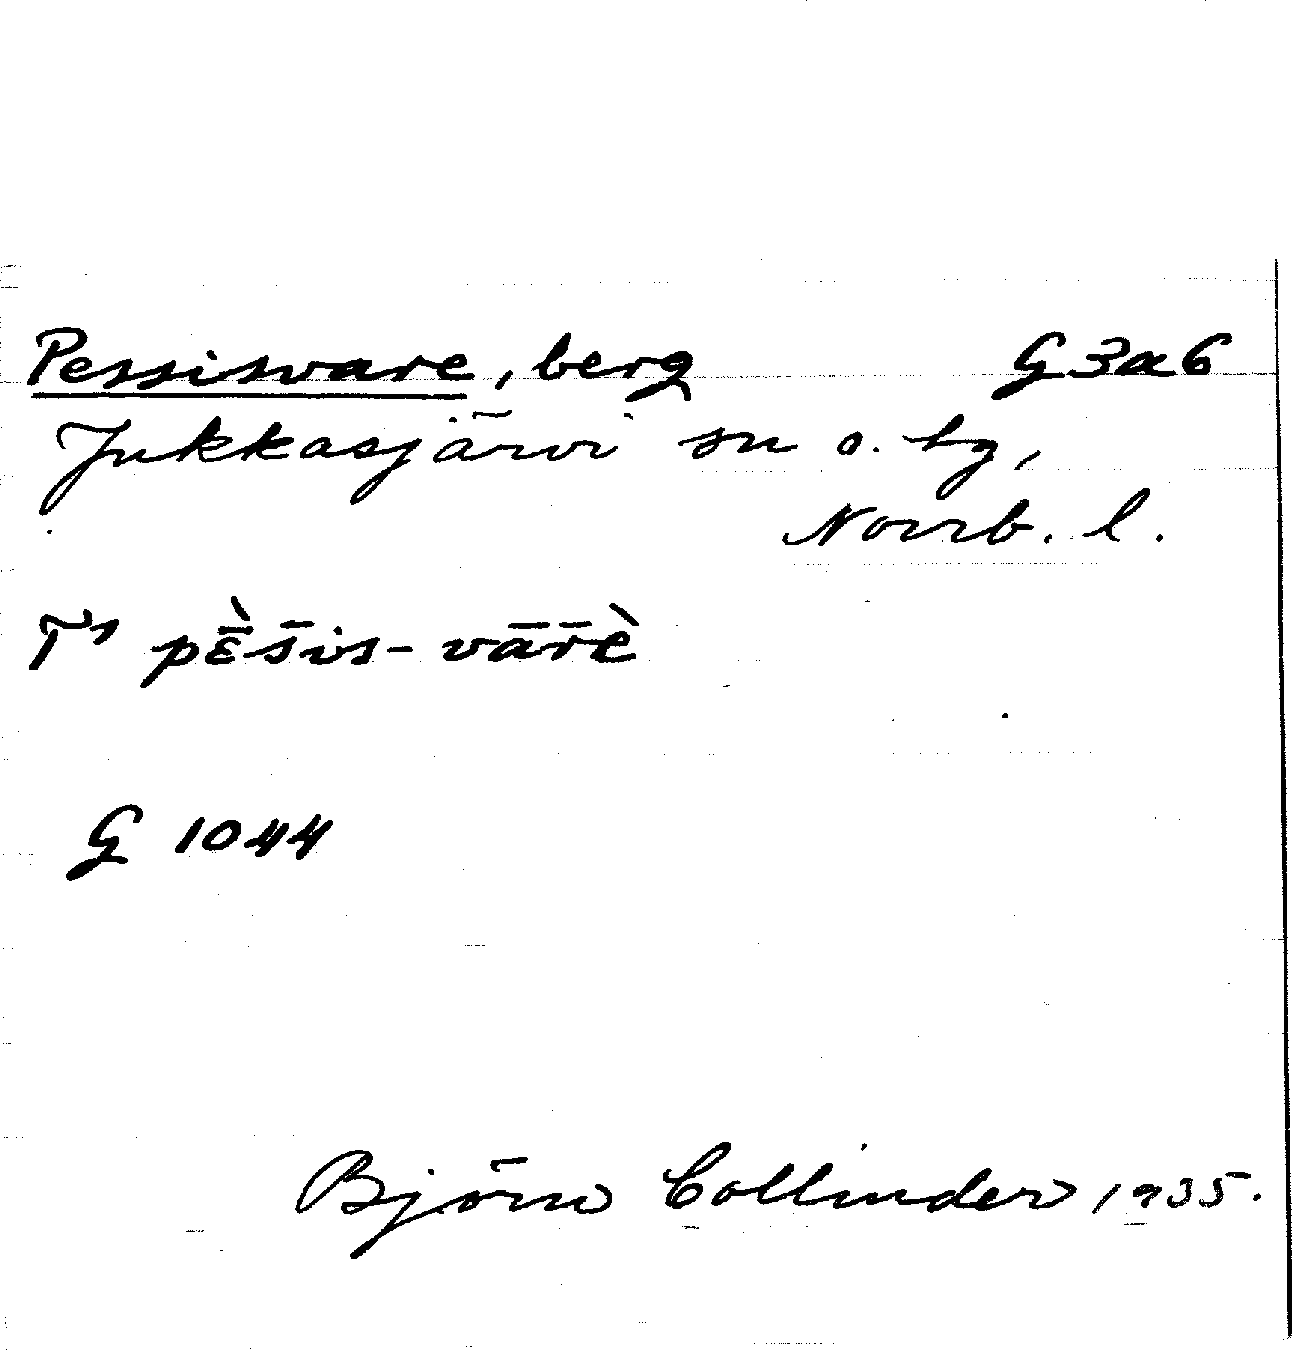 Pessisvare, berg G3a6
Jukkasjärvi sn o. tg,
Norrb. l.
T' pɛ̄̀s̄is-vār̄è
G 1044
Björn Collinder 1935.